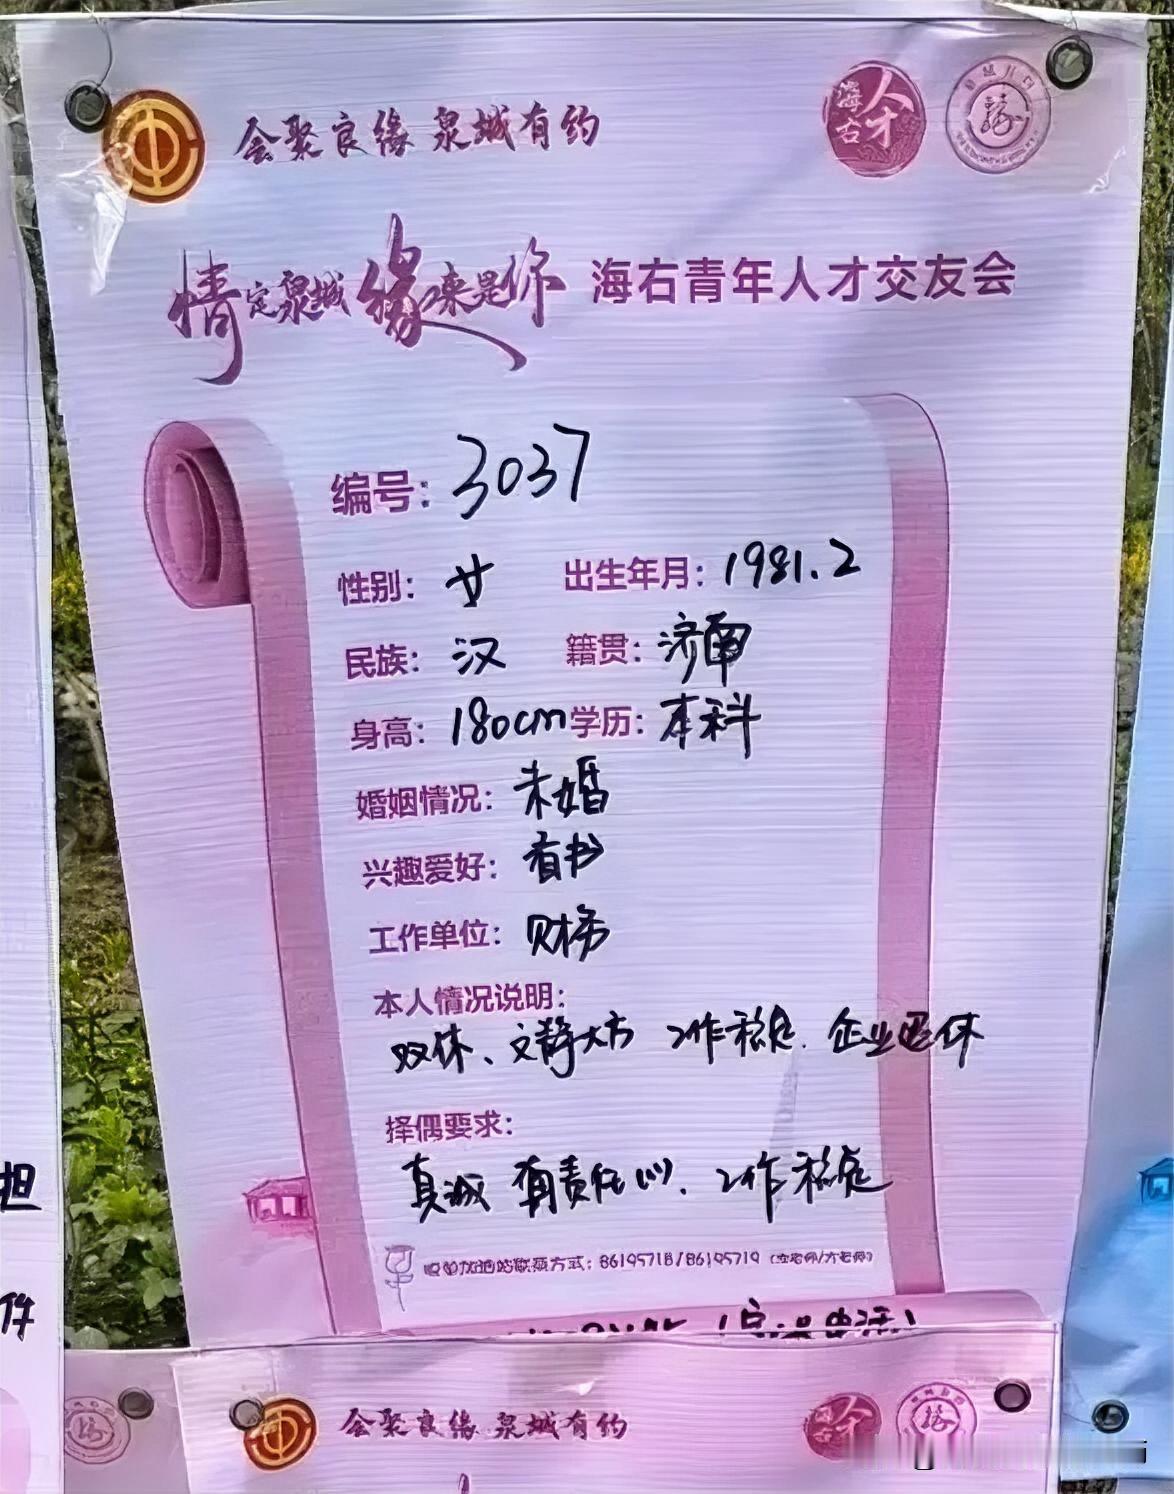 会聚良缘 泉城有约
海右人才
缘
情定泉城 缘来是你 海右青年人才交友会
编号: 3037
性别: 女 出生年月: 1981.2
民族: 汉 籍贯: 济南
身高: 180cm 学历: 本科
婚姻情况: 未婚
兴趣爱好: 看书
工作单位: 财务
本人情况说明:
双休、文静大方 工作稳定. 企业退休
择偶要求:
真诚 有责任心. 工作稳定
联系方式: 86195718/86195719
担
件
会聚良缘 泉城有约
海右人才
缘